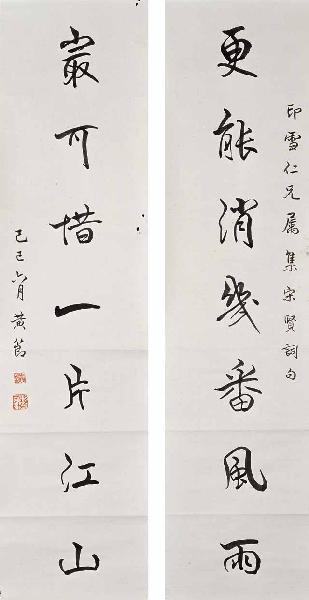 印雪仁兄属集宋賢詞句
更能消幾番風雨
最可惜一片江山
己巳六月黃節